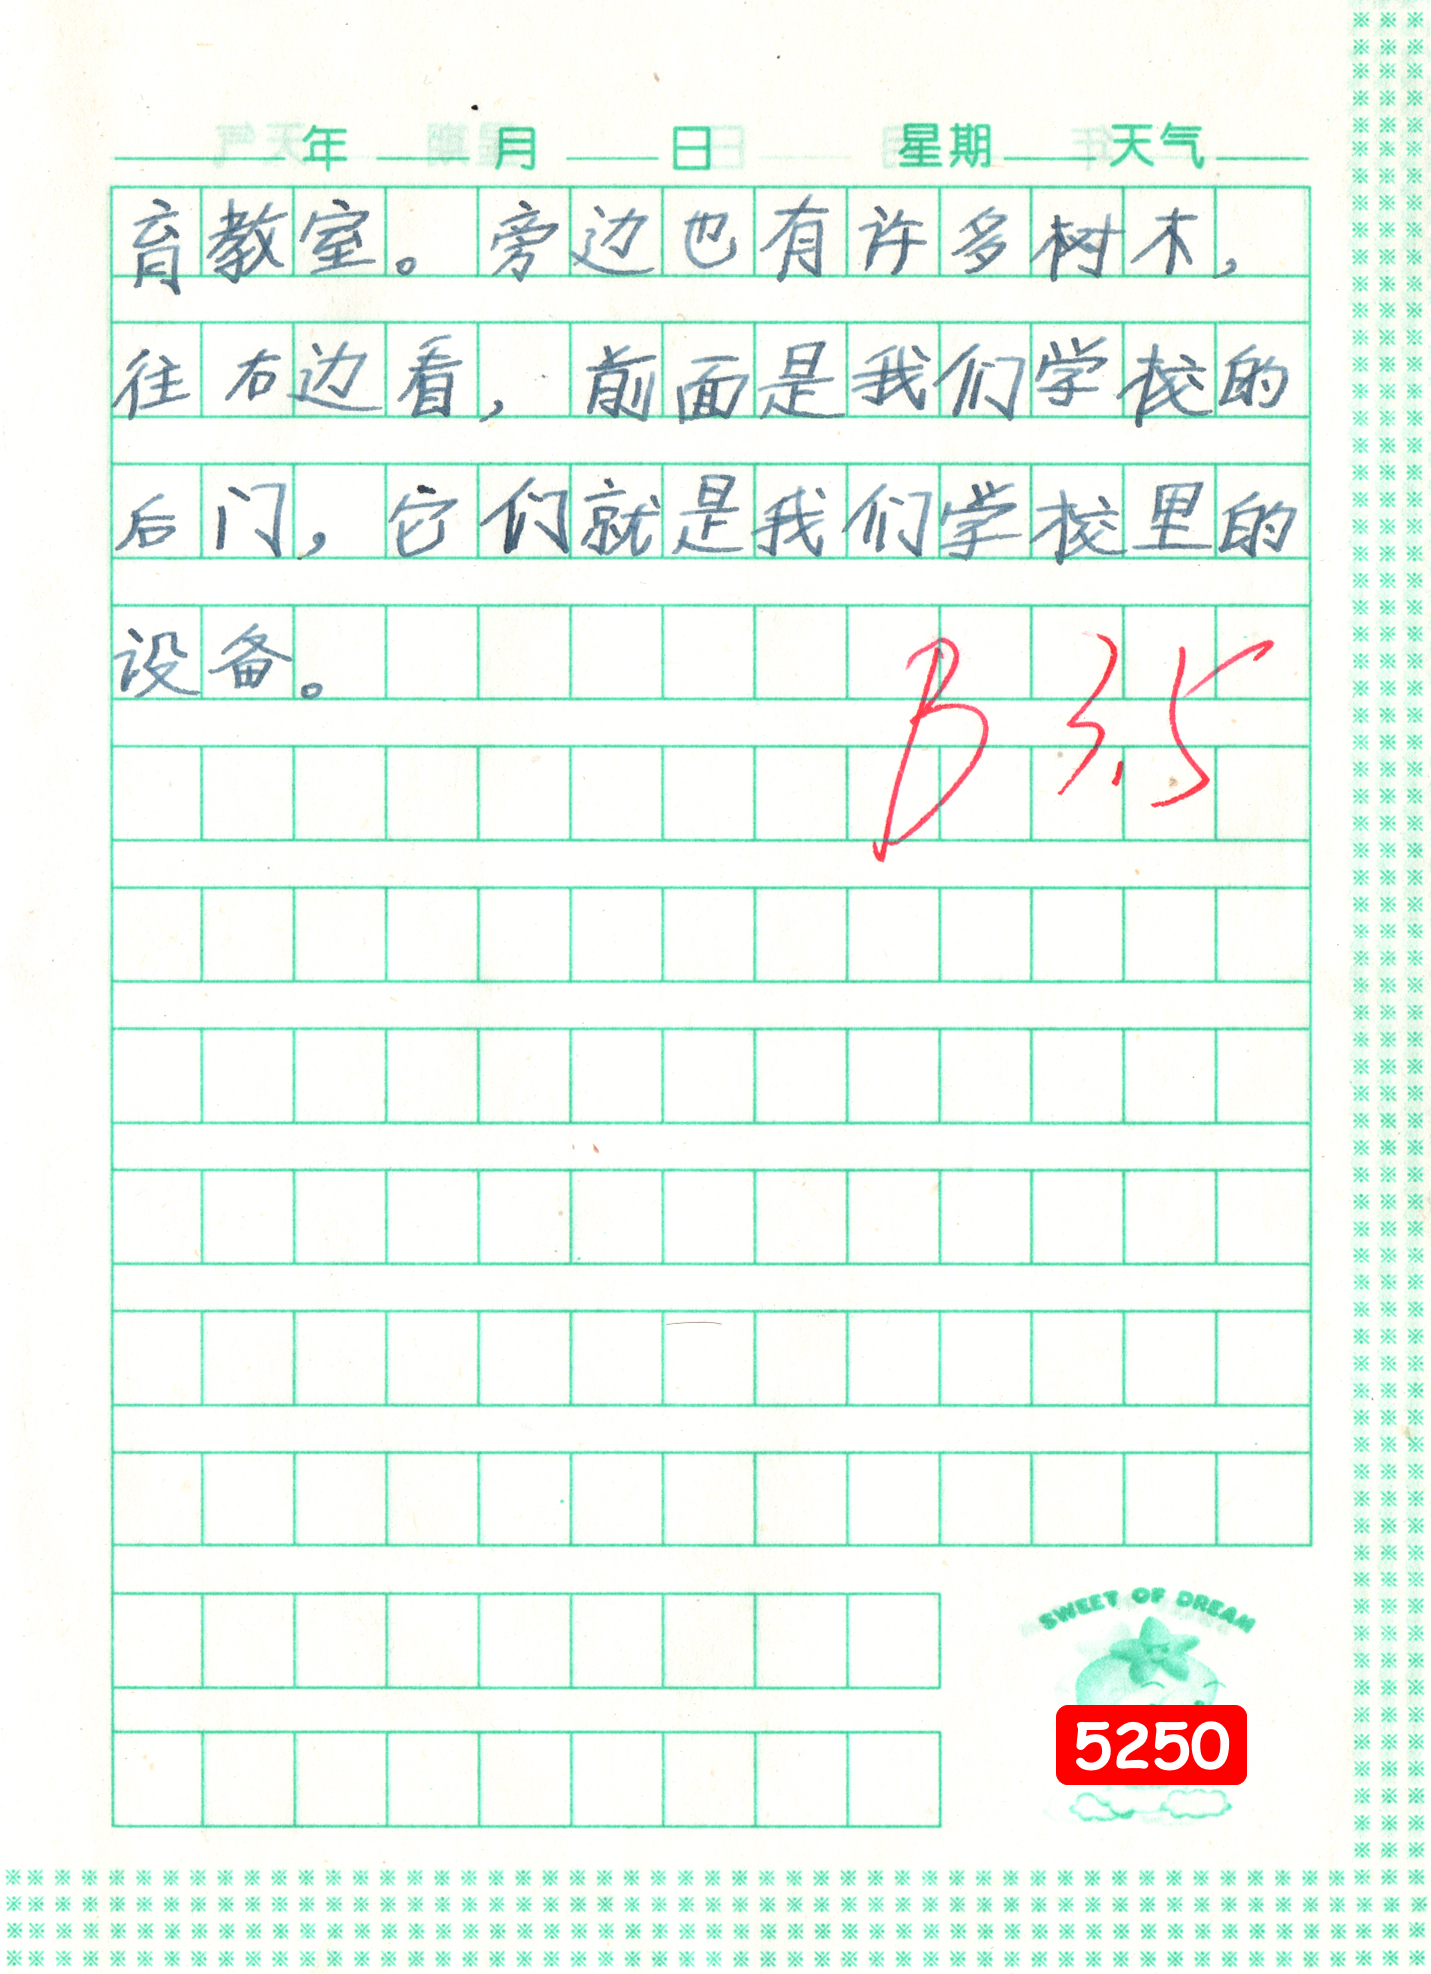 年 月 日 星期 天气
育教室。旁边也有许多树木，
往右边看，前面是我们学校的
后门，它们就是我们学校里的
设备。
B 3.5
SWEET OF DREAM
5250